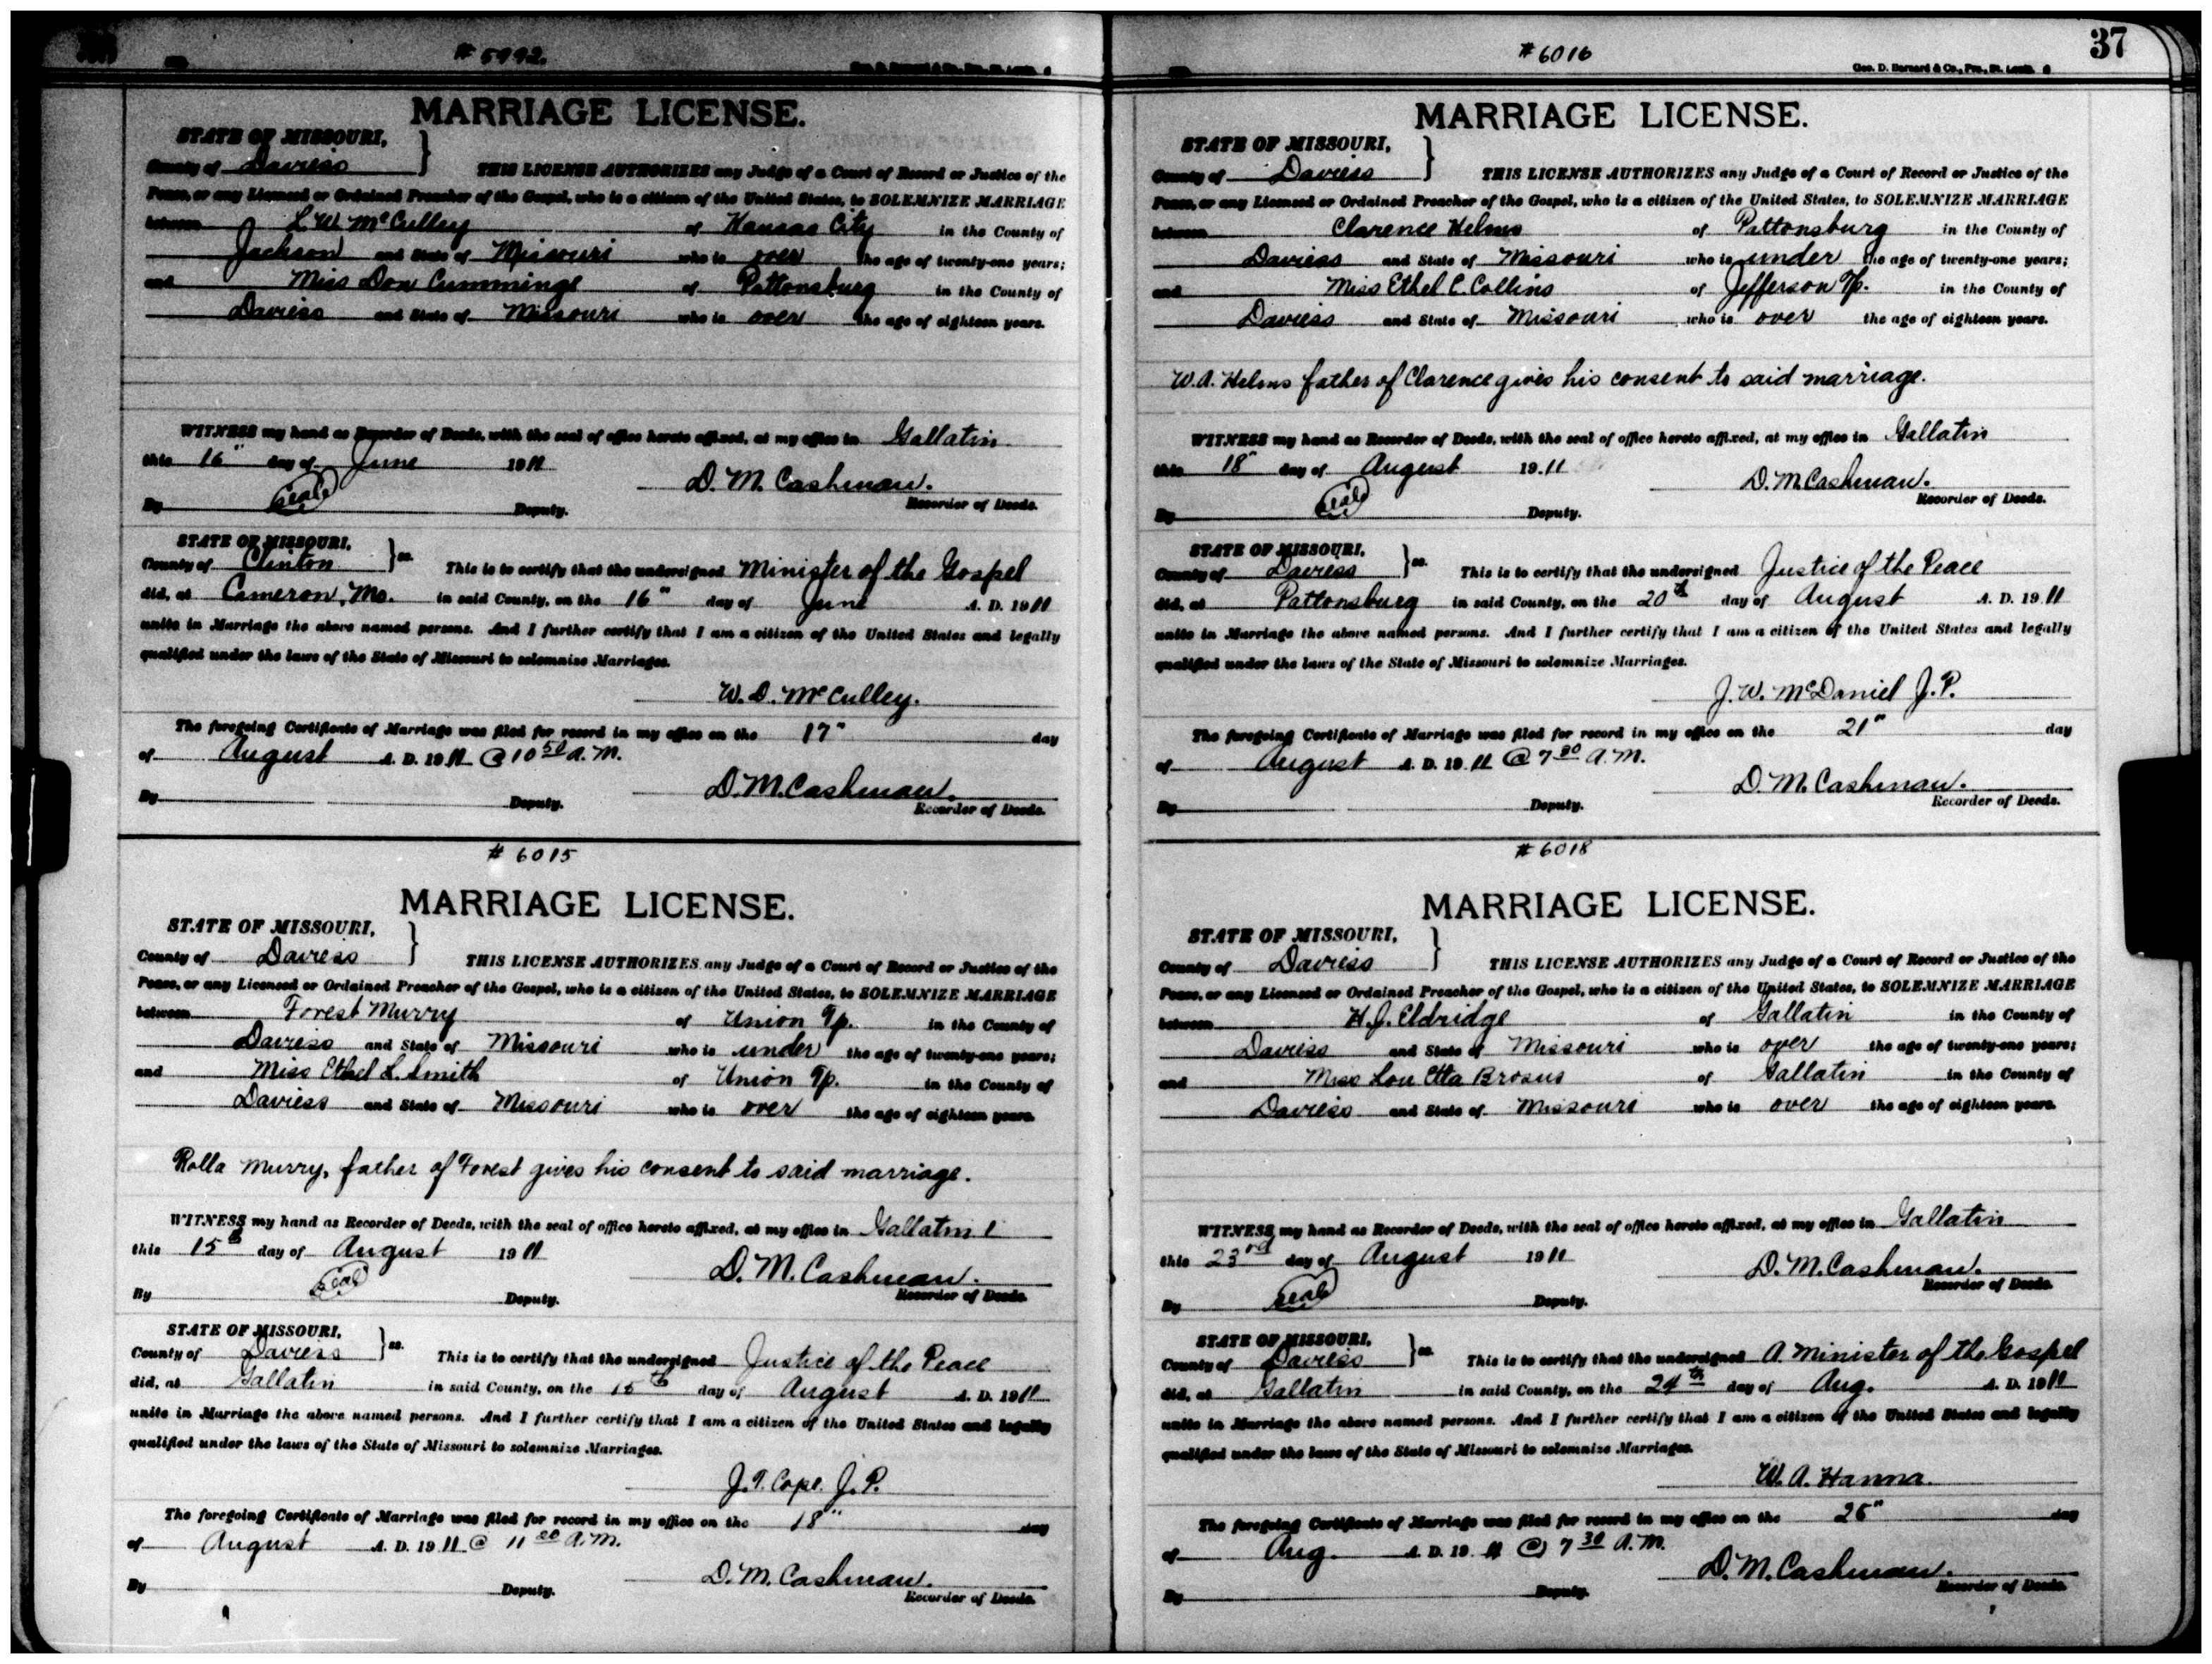 # 5992.
MARRIAGE LICENSE.
STATE OF MISSOURI,
County of Daviess
THIS LICENSE AUTHORIZES any Judge of a Court of Record or Justice of the
Peace, or any Licensed or Ordained Preacher of the Gospel, who is a citizen of the United States, to SOLEMNIZE MARRIAGE
between L W McCulley of Kansas City in the County of
Jackson and State of Missouri who is over the age of twenty-one years;
and Miss Don Cummings of Pattonsburg in the County of
Daviess and State of Missouri who is over the age of eighteen years.
WITNESS my hand as Recorder of Deeds, with the seal of office hereto affixed, at my office in Gallatin
this 16" day of June 1911
D. M. Cashman.
By seal Deputy. Recorder of Deeds.
STATE OF MISSOURI,
County of Clinton } ss. This is to certify that the undersigned Minister of the Gospel
did, at Cameron, Mo. in said County, on the 16" day of June A. D. 1911
unite in Marriage the above named persons. And I further certify that I am a citizen of the United States and legally
qualified under the laws of the State of Missouri to solemnize Marriages.
W. D. McCulley.
The foregoing Certificate of Marriage was filed for record in my office on the 17" day
of August A. D. 1911 @ 10 50 A. M.
D. M. Cashman.
By Deputy. Recorder of Deeds.
# 6015
MARRIAGE LICENSE.
STATE OF MISSOURI,
County of Daviess
THIS LICENSE AUTHORIZES any Judge of a Court of Record or Justice of the
Peace, or any Licensed or Ordained Preacher of the Gospel, who is a citizen of the United States, to SOLEMNIZE MARRIAGE
between Forest Murry of Union Tp. in the County of
Daviess and State of Missouri who is under the age of twenty-one years;
and Miss Ethel L Smith of Union Tp. in the County of
Daviess and State of Missouri who is over the age of eighteen years.
Rolla Murry, father of Forest gives his consent to said marriage.
WITNESS my hand as Recorder of Deeds, with the seal of office hereto affixed, at my office in Gallatin
this 15th day of August 1911
D. M. Cashman.
By seal Deputy. Recorder of Deeds.
STATE OF MISSOURI,
County of Daviess } ss. This is to certify that the undersigned Justice of the Peace
did, at Gallatin in said County, on the 15th day of August A. D. 1911
unite in Marriage the above named persons. And I further certify that I am a citizen of the United States and legally
qualified under the laws of the State of Missouri to solemnize Marriages.
J. T. Cope. J. P.
The foregoing Certificate of Marriage was filed for record in my office on the 18" day
of August A. D. 1911 @ 11 00 A. M.
D. M. Cashman.
By Deputy. Recorder of Deeds.
# 6016
37
Geo. D. Barnard & Co., Prs., St. Louis.
MARRIAGE LICENSE.
STATE OF MISSOURI,
County of Daviess
THIS LICENSE AUTHORIZES any Judge of a Court of Record or Justice of the
Peace, or any Licensed or Ordained Preacher of the Gospel, who is a citizen of the United States, to SOLEMNIZE MARRIAGE
between Clarence Helms of Pattonsburg in the County of
Daviess and State of Missouri who is under the age of twenty-one years;
and Miss Ethel C. Collins of Jefferson Tp. in the County of
Daviess and State of Missouri who is over the age of eighteen years.
W. A. Helms father of Clarence gives his consent to said marriage.
WITNESS my hand as Recorder of Deeds, with the seal of office hereto affixed, at my office in Gallatin
this 18" day of August 1911
D. M. Cashman.
By seal Deputy. Recorder of Deeds.
STATE OF MISSOURI,
County of Daviess } ss. This is to certify that the undersigned Justice of the Peace
did, at Pattonsburg in said County, on the 20th day of August A. D. 1911
unite in Marriage the above named persons. And I further certify that I am a citizen of the United States and legally
qualified under the laws of the State of Missouri to solemnize Marriages.
J. W. McDaniel J. P.
The foregoing Certificate of Marriage was filed for record in my office on the 21" day
of August A. D. 1911 @ 7 30 A. M.
D. M. Cashman.
By Deputy. Recorder of Deeds.
# 6018
MARRIAGE LICENSE.
STATE OF MISSOURI,
County of Daviess
THIS LICENSE AUTHORIZES any Judge of a Court of Record or Justice of the
Peace, or any Licensed or Ordained Preacher of the Gospel, who is a citizen of the United States, to SOLEMNIZE MARRIAGE
between H. J. Eldridge of Gallatin in the County of
Daviess and State of Missouri who is over the age of twenty-one years;
and Miss Lou Etta Brosus of Gallatin in the County of
Daviess and State of Missouri who is over the age of eighteen years.
WITNESS my hand as Recorder of Deeds, with the seal of office hereto affixed, at my office in Gallatin
this 23rd day of August 1911
D. M. Cashman.
By seal Deputy. Recorder of Deeds.
STATE OF MISSOURI,
County of Daviess } ss. This is to certify that the undersigned A. Minister of the Gospel
did, at Gallatin in said County, on the 24th day of Aug. A. D. 1911
unite in Marriage the above named persons. And I further certify that I am a citizen of the United States and legally
qualified under the laws of the State of Missouri to solemnize Marriages.
W. A. Hanna.
The foregoing Certificate of Marriage was filed for record in my office on the 25" day
of Aug. A. D. 1911 @ 7 30 A. M.
D. M. Cashman.
By Deputy. Recorder of Deeds.